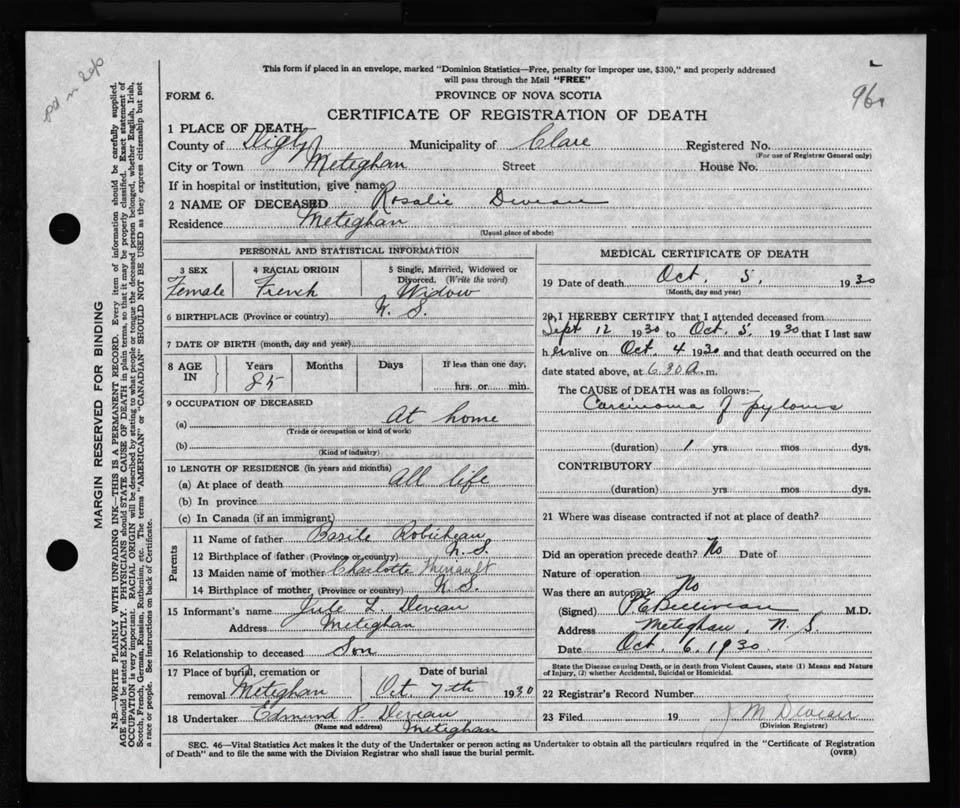 This form if placed in an envelope, marked "Dominion Statistics—Free, penalty for improper use, $300," and properly addressed
will pass through the Mail "FREE"
FORM 6.
PROVINCE OF NOVA SCOTIA
96
CERTIFICATE OF REGISTRATION OF DEATH
1 PLACE OF DEATH
County of Digby Municipality of Clare Registered No.
(For use of Registrar General only)
City or Town Meteghan Street House No.
If in hospital or institution, give name
2 NAME OF DECEASED Rosalie Deveau
Residence Meteghan
(Usual place of abode)
PERSONAL AND STATISTICAL INFORMATION
3 SEX 4 RACIAL ORIGIN 5 Single, Married, Widowed or
Divorced. (Write the word)
Female French Widow
6 BIRTHPLACE (Province or country) N. S.
7 DATE OF BIRTH (month, day and year)
8 AGE IN Years Months Days If less than one day,
85 hrs. or min.
9 OCCUPATION OF DECEASED
(a) At home
(Trade or occupation or kind of work)
(b)
(Kind of industry)
10 LENGTH OF RESIDENCE (in years and months)
(a) At place of death All life
(b) In province
(c) In Canada (if an immigrant)
Parents
11 Name of father Basile Robicheau
12 Birthplace of father (Province or country) N. S.
13 Maiden name of mother Charlotte
14 Birthplace of mother (Province or country) N. S.
15 Informant's name Jule L. Deveau
Address Meteghan
16 Relationship to deceased Son
17 Place of burial, cremation or Date of burial
removal Meteghan Oct. 7th 1930
18 Undertaker Edmund P. Deveau
(Name and address) Meteghan
MEDICAL CERTIFICATE OF DEATH
19 Date of death Oct. 5, 1930
(Month, day and year)
20 I HEREBY CERTIFY that I attended deceased from
Sept 12 1930 to Oct. 5. 1930 that I last saw
her alive on Oct. 4 1930 and that death occurred on the
date stated above, at 6.30 A. m.
The CAUSE of DEATH was as follows:—
Carcinoma of pylorus
(duration) 1 yrs. mos. dys.
CONTRIBUTORY
(duration) yrs. mos. dys.
21 Where was disease contracted if not at place of death?
Did an operation precede death? No Date of
Nature of operation
Was there an autopsy? No
(Signed) P E Belliveau M.D.
Address Meteghan, N. S
Date Oct 6, 1930
State the Disease causing Death, or in death from Violent Causes, state (1) Means and Nature
of Injury, (2) whether Accidental, Suicidal or Homicidal.
22 Registrar's Record Number
23 Filed 19 J M Deveau
(Division Registrar)
SEC. 46—Vital Statistics Act makes it the duty of the Undertaker or person acting as Undertaker to obtain all the particulars required in the "Certificate of Registration
of Death" and to file the same with the Division Registrar who shall issue the burial permit.
(OVER)
MARGIN RESERVED FOR BINDING
N.B.—WRITE PLAINLY WITH UNFADING INK—THIS IS A PERMANENT RECORD. Every item of information should be carefully supplied.
AGE should be stated EXACTLY. PHYSICIANS should STATE CAUSE OF DEATH in plain terms, so that it may be properly classified. Exact statement of
OCCUPATION is very important. RACIAL ORIGIN will be described by stating to what people or tongue the deceased person belonged, whether English, Irish,
Scotch, French, German, Russian, Ruthenian, etc. The terms "AMERICAN" or "CANADIAN" SHOULD NOT BE USED as they express citizenship but not
a race or people. See instructions on back of Certificate.